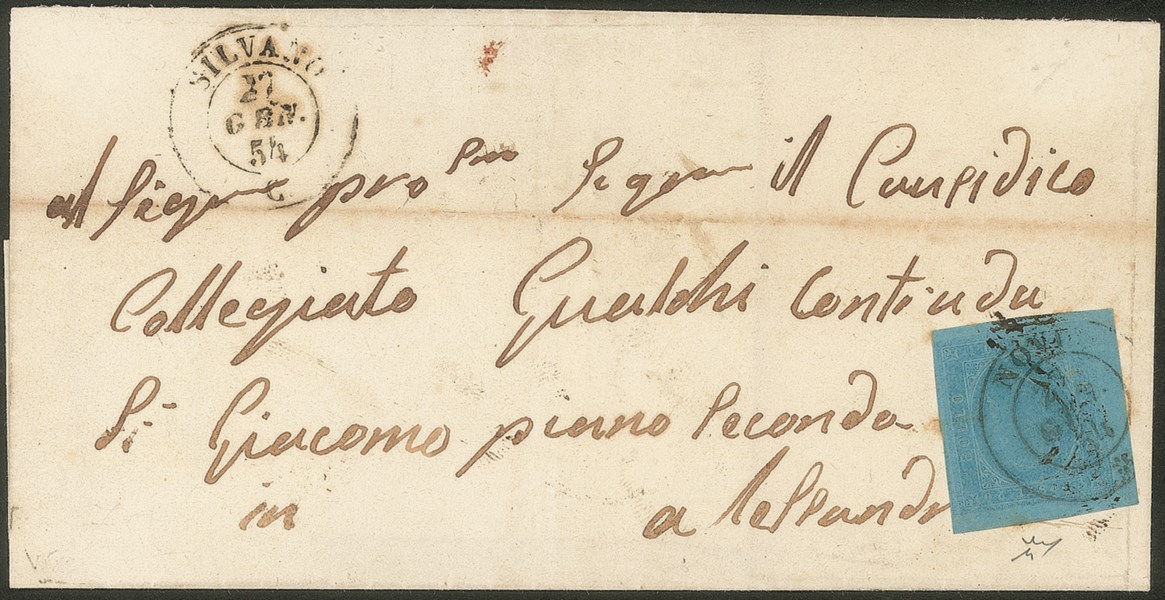 SILVANO
27
GEN.
54
al Sigr pro sen Segr il Causidico
Collegiato Gualchi Contrada
S. Giacomo piano Secondo
in alessandr
NOVI